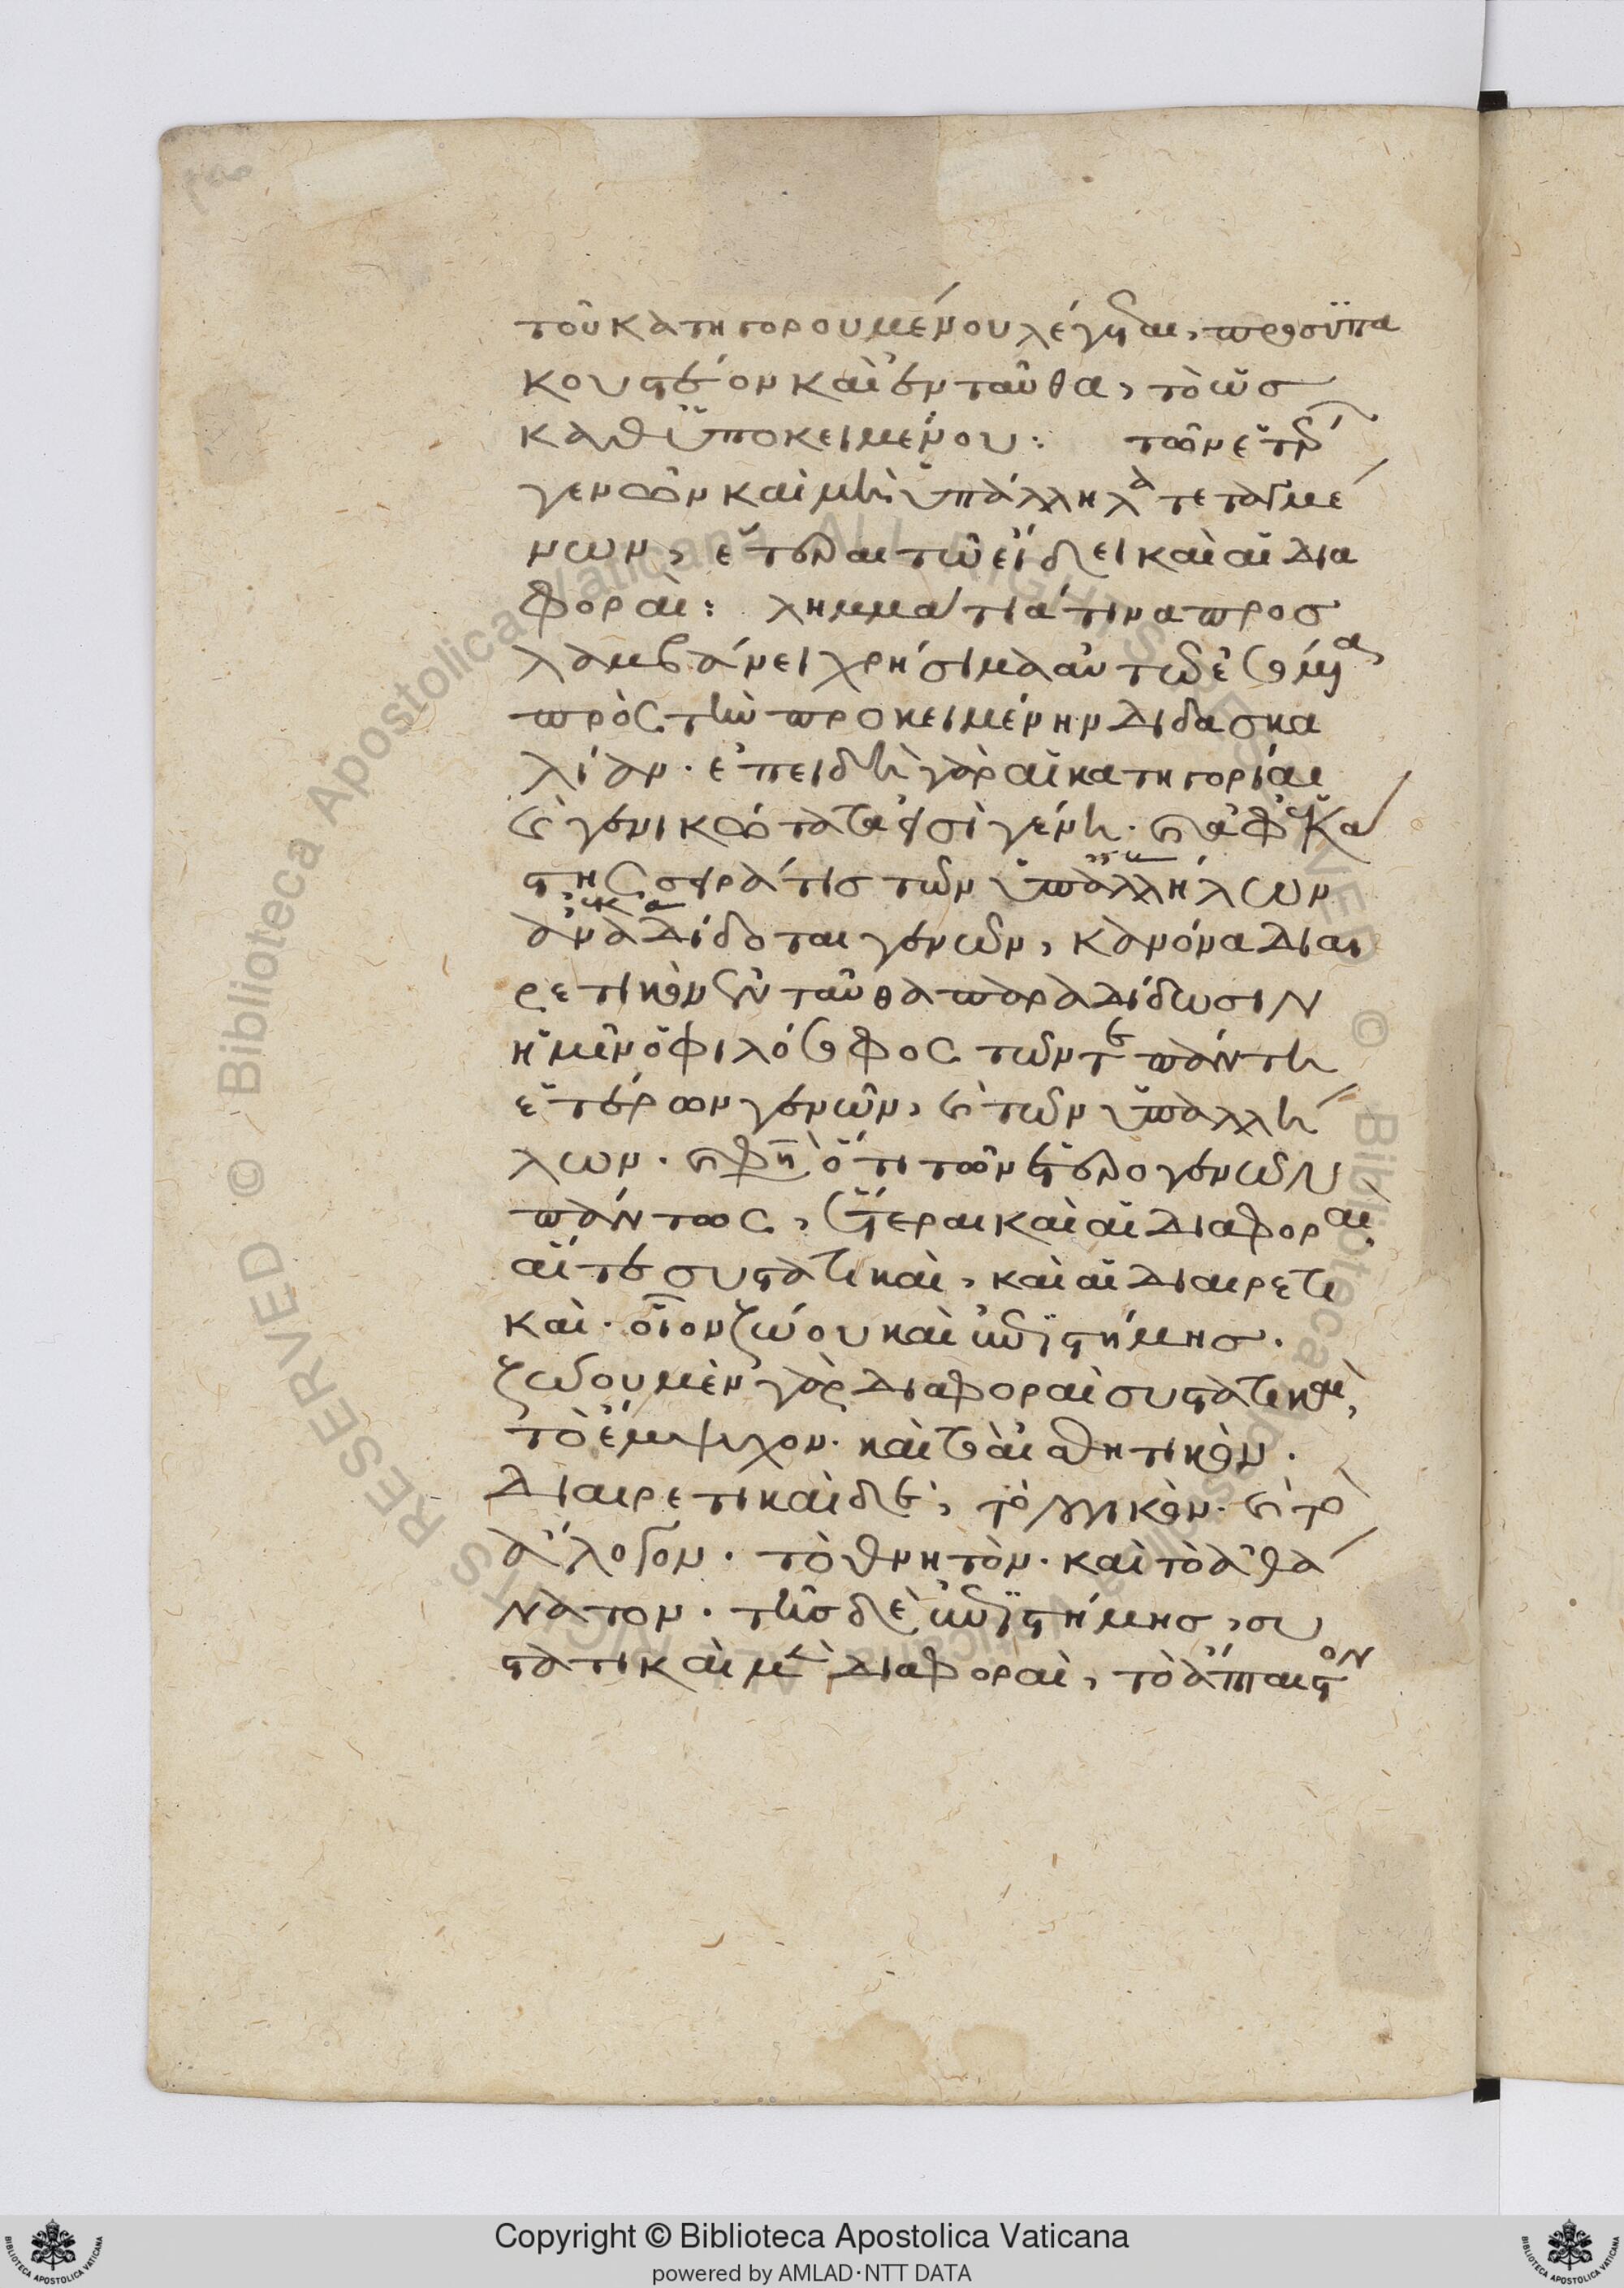 τοῦ κατηγορουμένου λέγεται, προσϋπα
κουστέον καὶ ἐνταῦθα, τὸ ὡσ
καθ ὑποκειμένου: τῶν ἑτέρων
γενῶν καὶ μὴ ὑπάλληλα τεταγμέ
νων, ἕτεραι τῶ εἴδει καὶ αἱ δια
φοραὶ: λημμάτιά τινα προσ
λαμβάνει χρήσιμα αὐτῶ ἐσόμενα
πρὸς τὴν προκειμένην διδασκα
λίαν. ἐπειδὴ γὰρ αἱ κατηγορίαι
τὰ γενικώτατά εἰσι γένη. καὶ ἀφ' ἑκά
στης σειρά τισ τῶν ὑπαλλήλων
ἀναδίδοται γενῶν, κανόνα διαι
ρετικὸν ἐνταῦθα παραδίδωσιν
ἡμῖν ὁ φιλόσοφος τῶν τε πάντη
ἑτέρων γενῶν, καὶ τῶν ὑπαλλή
λων. καὶ φησὶν ὅτι τῶν ἑτερογενῶν
πάντως, ἕτεραι καὶ αἱ διαφοραὶ,
αἵ τε συστατικαὶ, καὶ αἱ διαιρετι
καὶ. οἷον ζώου καὶ ἐπιστήμησ.
ζώου μὲν γὰρ διαφοραὶ συστατικαὶ,
τὸ ἔμψυχον. καὶ τὸ αἰσθητικὸν.
διαιρετικαὶ δὲ, τὸ λογικὸν. καὶ τὸ
ἄλογον. τὸ θνητὸν. καὶ τὸ ἀθά
νατον. τῆσ δὲ ἐπιστήμησ, συ
στατικαὶ μὲν διαφοραὶ, τὸ ἄπαιστον